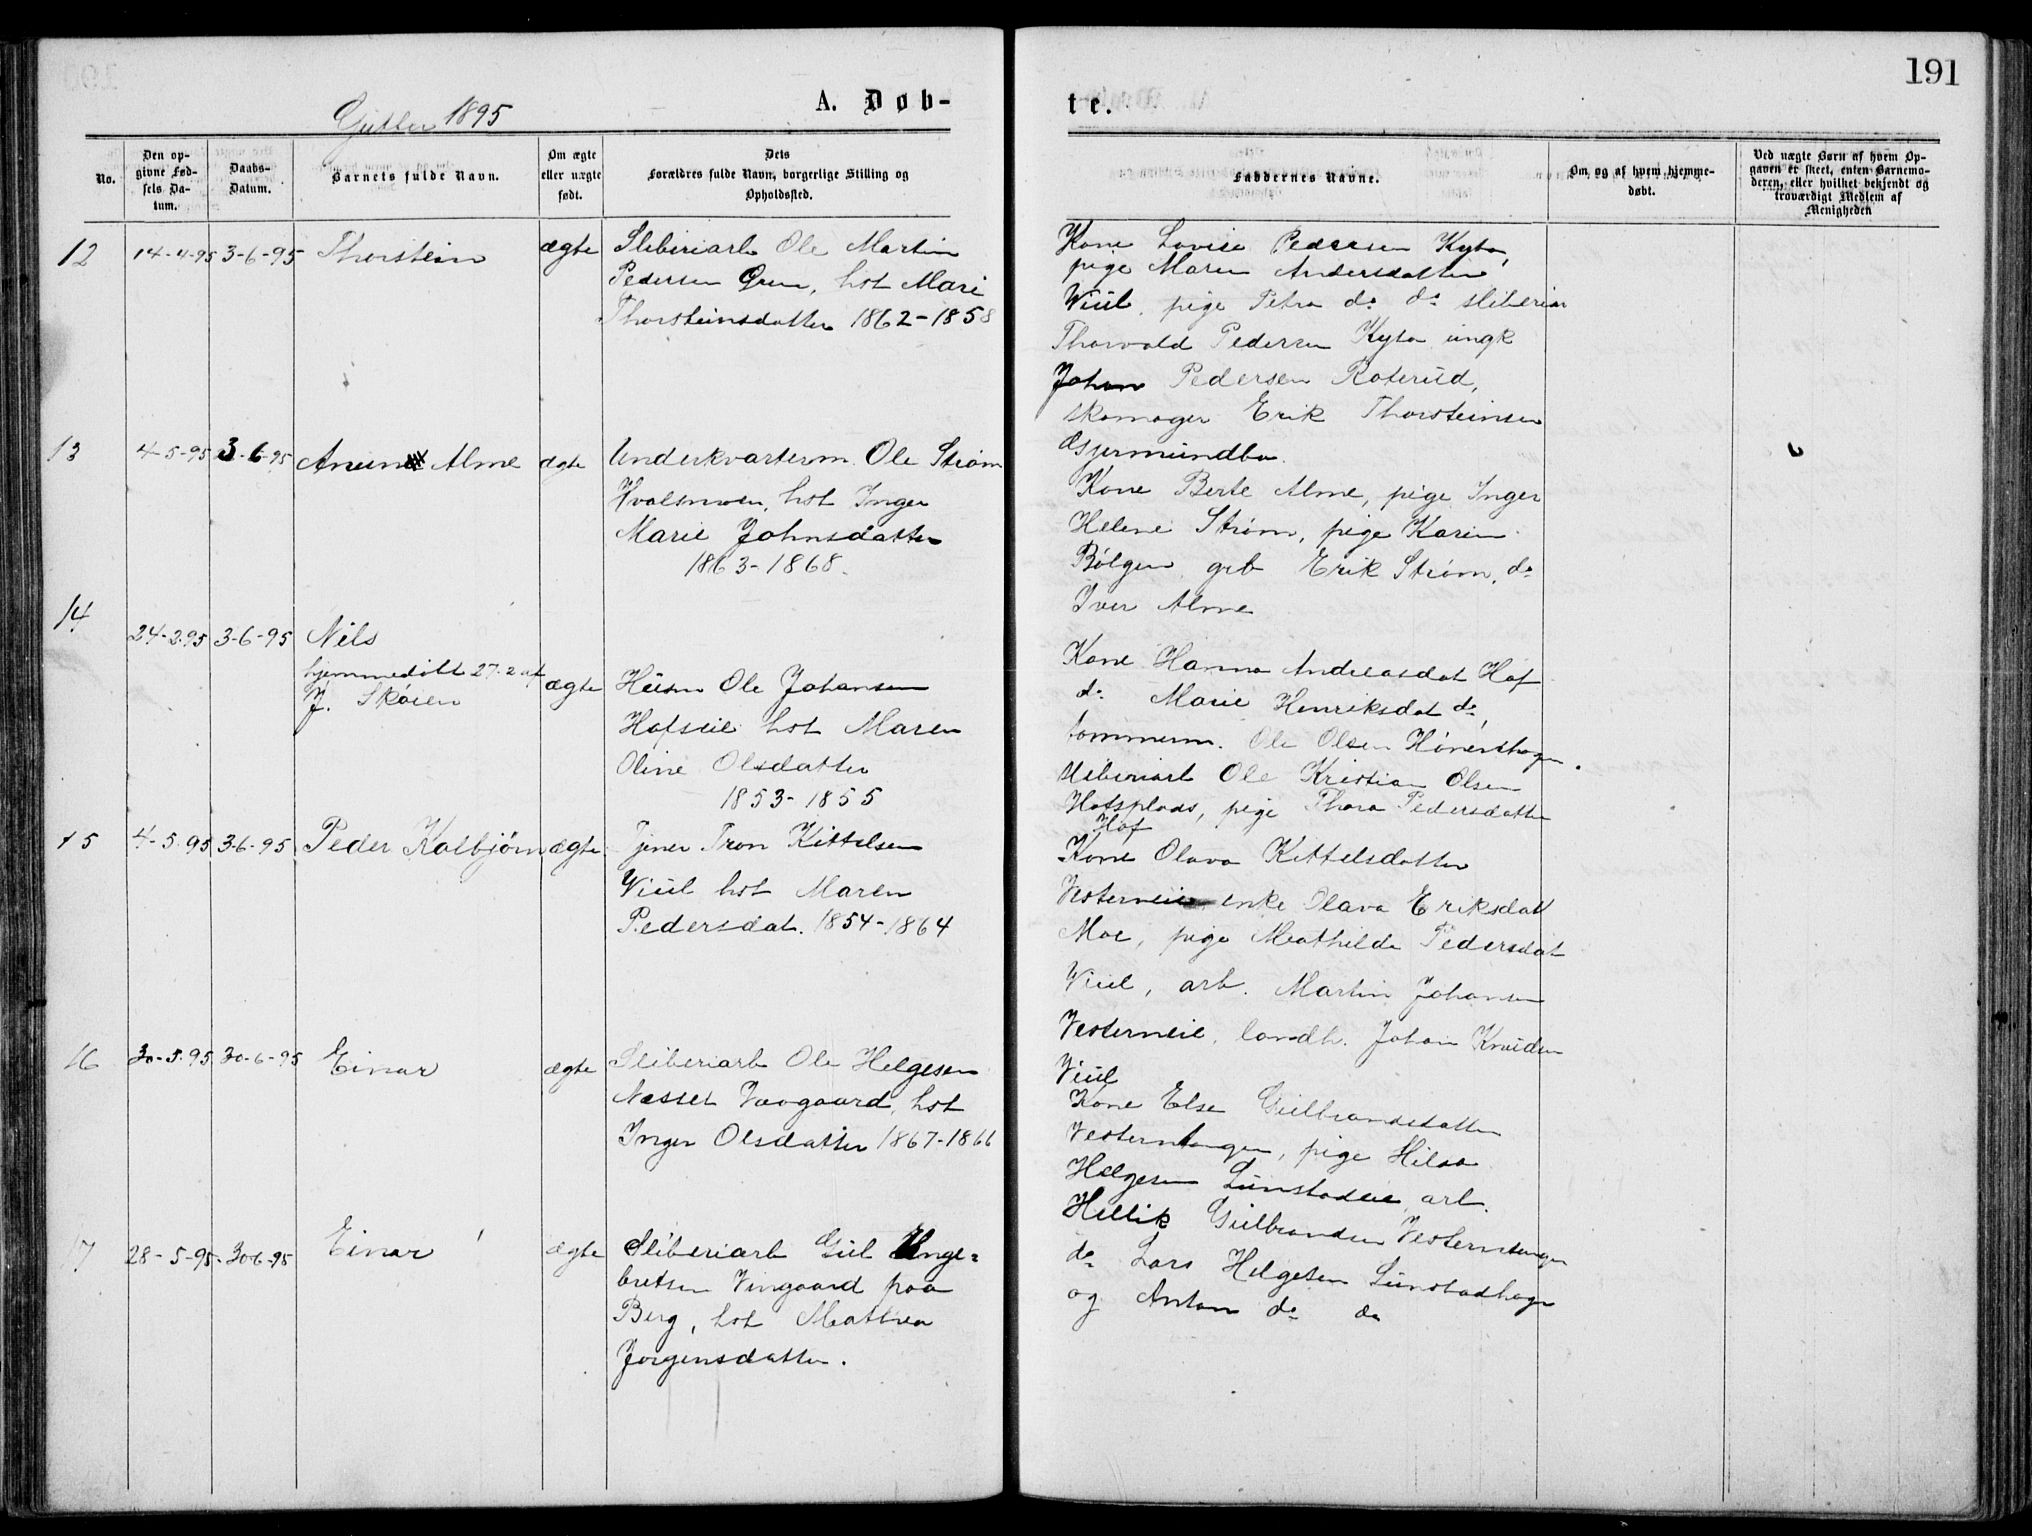 191
Gutter 1895
A. Døb-
te.
No.
Den op-
givne Fød-
sels Da-
tum.
Daabs-
Datum.
Barnets fulde Navn.
Om ægte
eller uægte
født.
Dets
Forældres fulde Navn, borgerlige Stilling og
Opholdssted.
Faddernes Navne.
Om og af hvem hjemme-
døbt.
Ved uægte Børn af hvem Op-
gaven er skeet, enten Barnemo-
deren, eller hvilket bekjendt og
troværdigt Medlem af
Menigheden
12 14-4-95 3-6-95 Thorstein ægte Sliberiarb Ole Martin
Pedersen Grua, hst Mari
Thorsteinsdatter 1862-1858
Kone Lovise Pedersen Kyto,
pige Maren Andersdatter
Viul, pige Petra do do sliberiar
Thorvald Pedersen Kyto ungk
Johan Pedersen Roterud,
skomager Erik Thorsteinsen
Gjermundbo.
13 4-5-95 3-6-95 Anun Alme ægte Underkvarterm. Ole Strøm
Hvalsmoen, hst Inger
Marie Johnsdatter
1863-1868.
Kone Berte Alme, pige Inger
Helene Strøm, pige Karin
Bølgen, grb Erik Strøm, do
Iver Alme
14 24-2-95 3-6-95 Nils
hjemmedøbt 27-2 af
J. Skøien
ægte Husm Ole Johansen
Hofseie hst Maren
Oline Olsdatter
1853-1855
Kone Hanna Andreasdat Hof
do Marie Henriksdat do,
tommerm. Ole Olsen Hønershagen.
Sliberiarb Ole Kristian Olsen
Hofsplads, pige Thora Pedersdatter
Hof
15 4-5-95 3-6-95 Peder Kolbjørn ægte Tjener Tron Kittelsen
Viul hst Maren
Pedersdat. 1854-1864
Kone Olava Kittelsdatter
Vesterneie enke Olava Eriksdatt
Moe, pige Mathilde Pedersdat
Viul, arb. Martin Johansen
Vesterneie, landh. Johan Knudsen
Viul
16 30-5-95 30-6-95 Einar ægte Sliberiarb Ole Helgesen
Nesset Vaagaard, hst
Inger Olsdatter 1867-1866
Kone Else Gulbrandsdatter
Vesterntangen, pige Hilda
Helgesen Lunstadeie, arb.
Hellik Gulbrandsen Vesterntangen
do Lars Helgesen Lunstadhage
og Anton do do
17 28-5-95 30-6-95 Einar ægte Sliberiarb Gul Enge-
bretsen Vingaard paa
Berg, hst Mathea
Jørgensdatter.